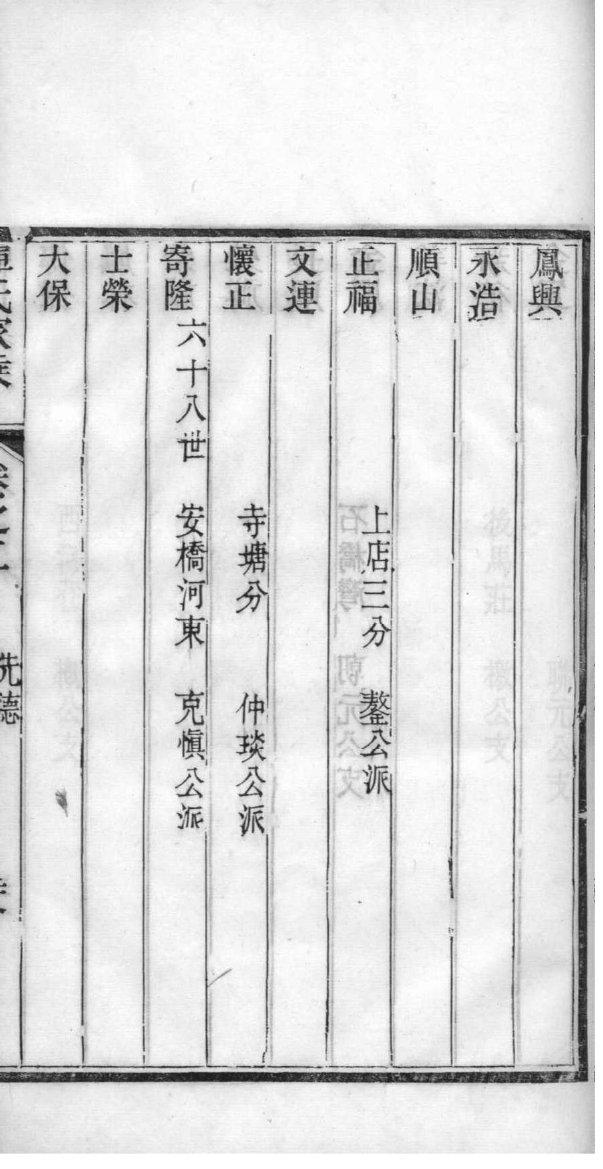 鳳興
永浩
順山
正福　上店三分　鏊公派
文連
懷正　寺塘分　仲琰公派
寄隆　六十八世　安橋河東　克愼公派
士榮
大保
氏家乘　卷之二　先德